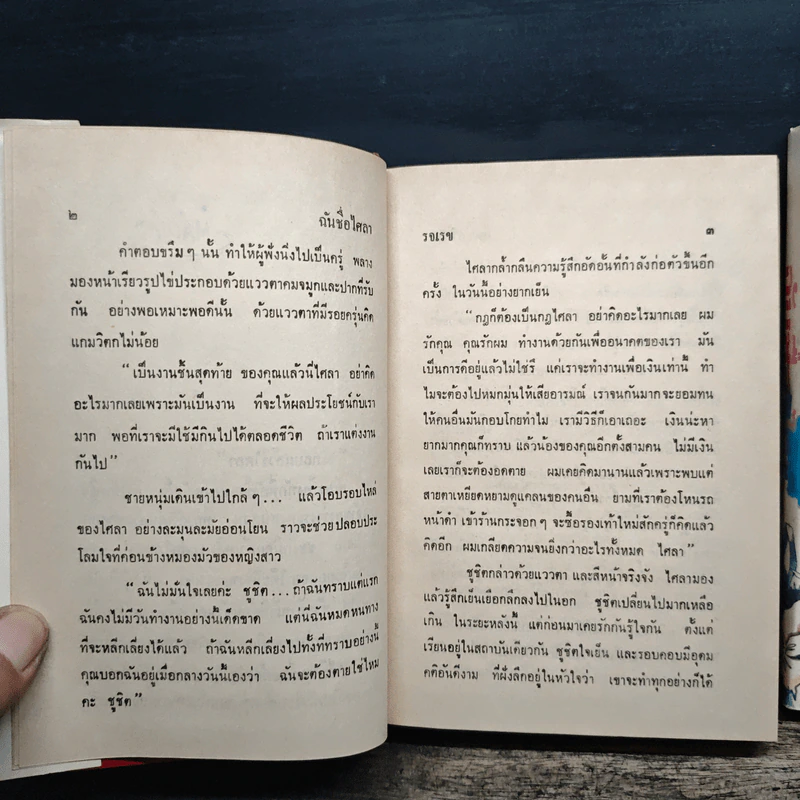 ๒
ฉันชื่อไศลา
คำตอบขรึมๆ นั้น ทำให้ผู้ฟังนิ่งไปเป็นครู่ พลาง
มองหน้าเรียวรูปไข่ประกอบด้วยแววตาคมจมูกและปากที่รับ
กัน อย่างพอเหมาะพอดีนั้น ด้วยแววตาที่มีรอยครุ่นคิด
แกมวิตกไม่น้อย
“เป็นงานชิ้นสุดท้าย ของคุณแล้วนี่ไศลา อย่าคิด
อะไรมากเลยเพราะมันเป็นงาน ที่จะให้ผลประโยชน์กับเรา
มาก พอที่เราจะมีใช้มีกินไปได้ตลอดชีวิต ถ้าเราแต่งงาน
กันไป”
ชายหนุ่มเดินเข้าไปใกล้ๆ... แล้วโอบรอบไหล่
ของไศลา อย่างละมุนละมัยอ่อนโยน ราวจะช่วยปลอบประ
โลมใจที่ค่อนข้างหมองมัวของหญิงสาว
“ฉันไม่มั่นใจเลยค่ะ ชูชิต...ถ้าฉันทราบแต่แรก
ฉันคงไม่มีวันทำงานอย่างนี้เด็ดขาด แต่นี่ฉันหมดหนทาง
ที่จะหลีกเลี่ยงได้แล้ว ถ้าฉันหลีกเลี่ยงไปทั้งที่ทราบอย่างนี้
คุณบอกฉันอยู่เมื่อกลางวันนี้เองว่า ฉันจะต้องตายใช่ไหม
คะ ชูชิต”
รจเรข
๓
ไศลากล้ำกลืนความรู้สึกอัดอั้นที่กำลังก่อตัวขึ้นอีก
ครั้ง ในวันนี้อย่างยากเย็น
“กฎก็ต้องเป็นกฎไศลา อย่าคิดอะไรมากเลย ผม
รักคุณ คุณรักผม ทำงานด้วยกันเพื่ออนาคตของเรา มัน
เป็นการดีอยู่แล้วไม่ใช่รึ แค่เราจะทำงานเพื่อเงินเท่านี้ ทำ
ไมจะต้องไปหมกมุ่นให้เสียอารมณ์ เราจนกันมากจะยอมทน
ให้คนอื่นมันกอบโกยทำไม เรามีวิธีก็เอาเถอะ เงินน่ะหา
ยากมากคุณก็ทราบ แล้วน้องของคุณอีกตั้งสามคน ไม่มีเงิน
เลยเราก็จะต้องอดตาย ผมเคยคิดมานานแล้วเพราะพบแต่
สายตาเหยียดหยามดูแคลนของคนอื่น ยามที่เราต้องโหนรถ
หน้าดำ เข้าร้านกระจอกๆ จะซื้อรองเท้าใหม่สักครู่ก็คิดแล้ว
คิดอีก ผมเกลียดความจนยิ่งกว่าอะไรทั้งหมด ไศลา”
ชูชิตกล่าวด้วยแววตา และสีหน้าจริงจัง ไศลามอง
แล้วรู้สึกเย็นเยือกลึกลงไปในอก ชูชิตเปลี่ยนไปมากเหลือ
เกิน ในระยะหลังนี้ แต่ก่อนมาเคยรักกันรู้ใจกัน ตั้งแต่
เรียนอยู่ในสถาบันเดียวกัน ชูชิตใจเย็น และรอบคอบมีอุดม
คติอันดีงาม ที่ฝังลึกอยู่ในหัวใจว่า เขาจะทำทุกอย่างก็ได้